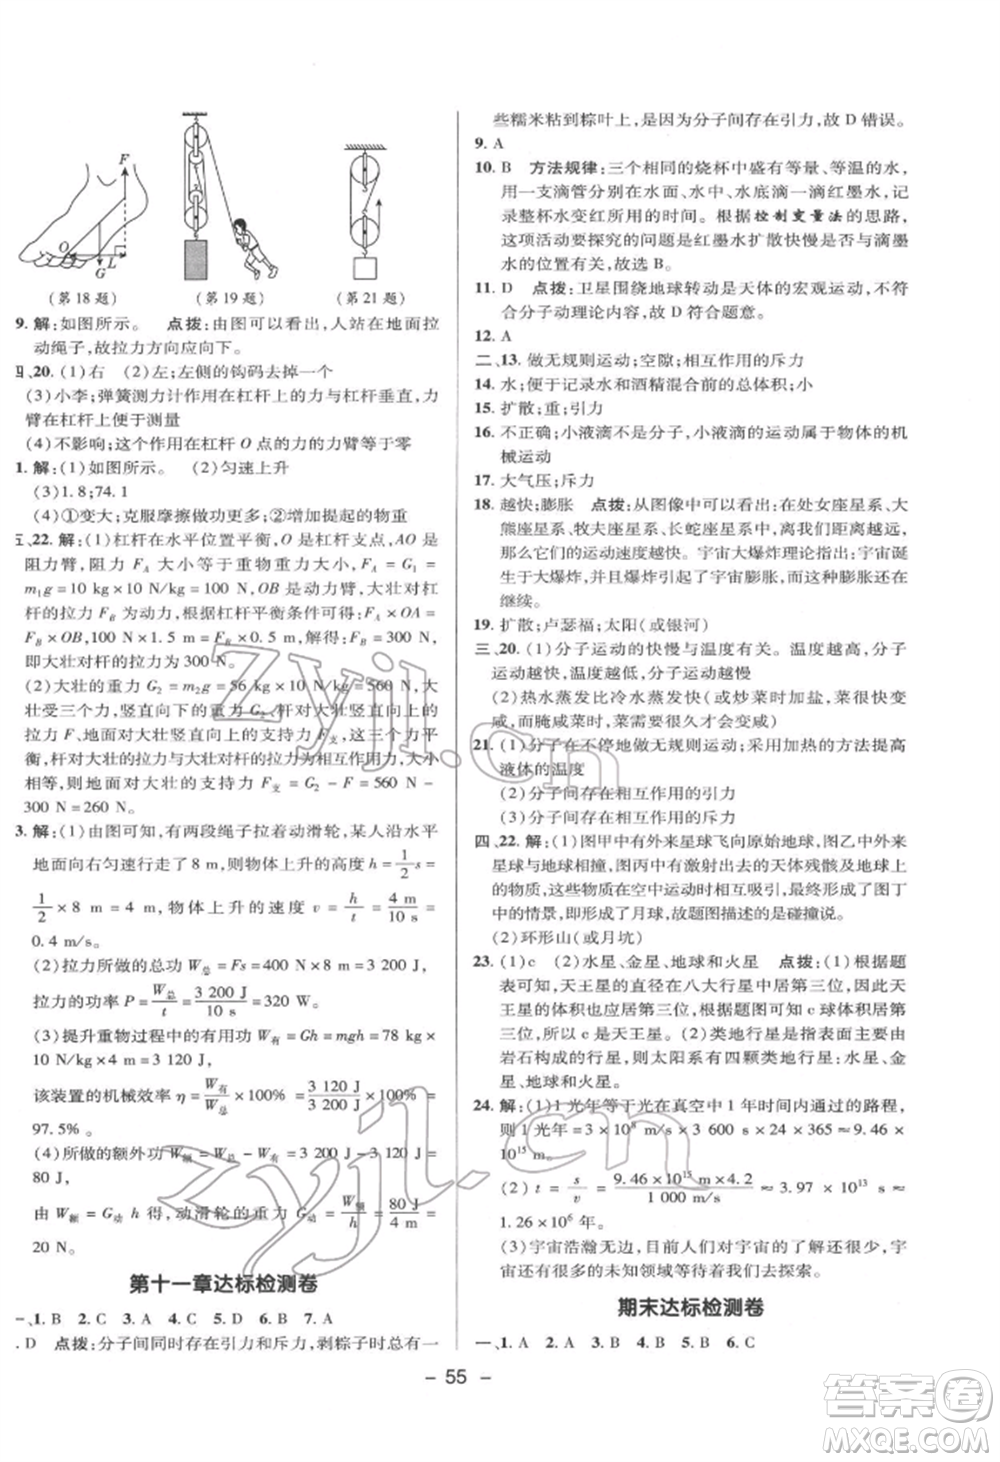 F
O
L
G
(第18题)
(第19题)
(第21题)
9. 解:如图所示。 点拨:由图可以看出,人站在地面拉
动绳子,故拉力方向应向下。
四、20. (1)右 (2)左;左侧的钩码去掉一个
(3)小李;弹簧测力计作用在杠杆上的力与杠杆垂直,力
臂在杠杆上便于测量
(4)不影响;这个作用在杠杆 O 点的力的力臂等于零
1. 解:(1)如图所示。 (2)匀速上升
(3)1.8;74.1
(4)①变大;克服摩擦做功更多;②增加提起的物重
五、22. 解:(1)杠杆在水平位置平衡,O 是杠杆支点,AO 是
阻力臂,F_A 大小等于重物重力大小,F_A = G₁ =
m₁g=10 kg×10 N/kg=100 N,OB 是动力臂,大壮对杠
杆的拉力 F_B 为动力,根据杠杆平衡条件可得:F_A×OA=
F_B×OB,100 N×1.5 m=F_B×0.5 m,解得:F_B=300 N,
即大壮对杆的拉力为 300 N。
(2)大壮的重力 G₂=m₂g=56 kg×10 N/kg=560 N,大
壮受三个力,竖直向下的重力 G₂、杆对大壮竖直向上的
拉力 F、地面对大壮竖直向上的支持力 F支,三个力平
衡,杆对大壮的拉力与大壮对杆的拉力是相互作用力,大
小相等,地面对大壮的支持力 F支 = G₂ - F = 560 N -
300 N=260 N。
3. 解:(1)由图可知,有两段绳子拉着动滑轮,某人沿水平
地面向右匀速行走了 8 m,则物体上升的高度 h=1/2 s=
1/2 × 8 m = 4 m,物体上升的速度 v = h/t = 4 m/10 s =
0.4 m/s。
(2)拉力所做的总功 W总=Fs=400 N×8 m=3 200 J,
拉力的功率 P=W总/t=3 200 J/10 s=320 W。
(3)提升重物过程中的有用功 W有=Gh=mgh=78 kg×
10 N/kg×4 m=3 120 J,
该装置的机械效率 η=W有/W总×100%=3 120 J/3 200 J×100%=
97.5%。
(4)所做的额外功 W额=W总-W有=3 200 J-3 120 J=
80 J,
由 W额=G动 h 得,动滑轮的重力 G动 = W额/h = 80 J/4 m =
20 N。
第十一章达标检测卷
一、1. B 2. C 3. A 4. C 5. D 6. B 7. A
. D 点拨:分子间同时存在引力和斥力,剥粽子时总有一
些糯米粘到粽叶上,是因为分子间存在引力,故 D 错误。
9. A
10. B 方法规律:三个相同的烧杯中盛有等量、等温的水,
用一支滴管分别在水面、水中、水底滴一滴红墨水,记
录整杯水变红所用的时间。根据控制变量法的思路,
这项活动要探究的问题是红墨水扩散快慢是否与滴墨
水的位置有关,故选 B。
11. D 点拨:卫星围绕地球转动是天体的宏观运动,不符
合分子动理论内容,故 D 符合题意。
12. A
二、13. 做无规则运动;空隙;相互作用的斥力
14. 水;便于记录水和酒精混合前的总体积;小
15. 扩散;重;引力
16. 不正确;小液滴不是分子,小液滴的运动属于物体的机
械运动
17. 大气压;斥力
18. 越快;膨胀 点拨:从图像中可以看出:在处女座星系、大
熊座星系、牧夫座星系、长蛇座星系中,距离我们越远,
它们的运动速度越快。宇宙大爆炸理论指出:宇宙诞
生于大爆炸,爆炸引起了宇宙膨胀,这个过程现在还在
继续。
19. 扩散;卢瑟福;太阳(或银河)
三、20. (1)分子运动的快慢与温度有关。温度越高,分子
运动越快,温度越低,分子运动越慢
(2)热水蒸发比冷水蒸发快(或炒菜时加盐,菜很快变
咸,而腌咸菜时,菜需要很久才会变咸)
21. (1)分子在不停地做无规则运动;采用加热的方法提高
液体的温度
(2)分子间存在相互作用的引力
(3)分子间存在相互作用的斥力
四、22. 解:(1)图甲中有外来星球飞向原始地球,图乙中外来
星球与地球相撞,图丙中有激射出去的天体残骸及地球上
的物质,这些物质在空中运动时相互吸引,形成了图丁
中的情景,即形成了月球,故题图描述的是碰撞说。
(2)环形山(或月坑)
23. (1)c (2)水星、金星、地球和火星 点拨:(1)根据题
表可知,天王星的直径在八大行星中居第三位,因此天
王星的体积也应居第三位,根据图可知 c 球体积居第
三位,所以 c 是天王星。(2)类地行星是指表面主要由
岩石构成的行星,则太阳系有四颗类地行星:水星、金
星、地球和火星。
24. 解:(1)1 光年等于光在真空中 1 年时间内通过的路程,
则 1 光年= 3 × 10⁸ m/s × 3 600 s × 24 × 365 ≈ 9.46 ×
10¹⁵ m。
(2) t = s/v = 9.46×10¹⁵ m×4.2/1 000 m/s ≈ 3.97 × 10¹³ s ≈
1.26×10⁶ 年。
(3)宇宙浩瀚无边,目前人们对宇宙的了解还很少,
宇宙还有很多的未知领域等待我们去探索。
期末达标检测卷
一、1. A 2. C 3. B 4. B 5. B 6. C
- 55 -
zyjl.cn
zyjl.cn
答案圈
MXQE.COM